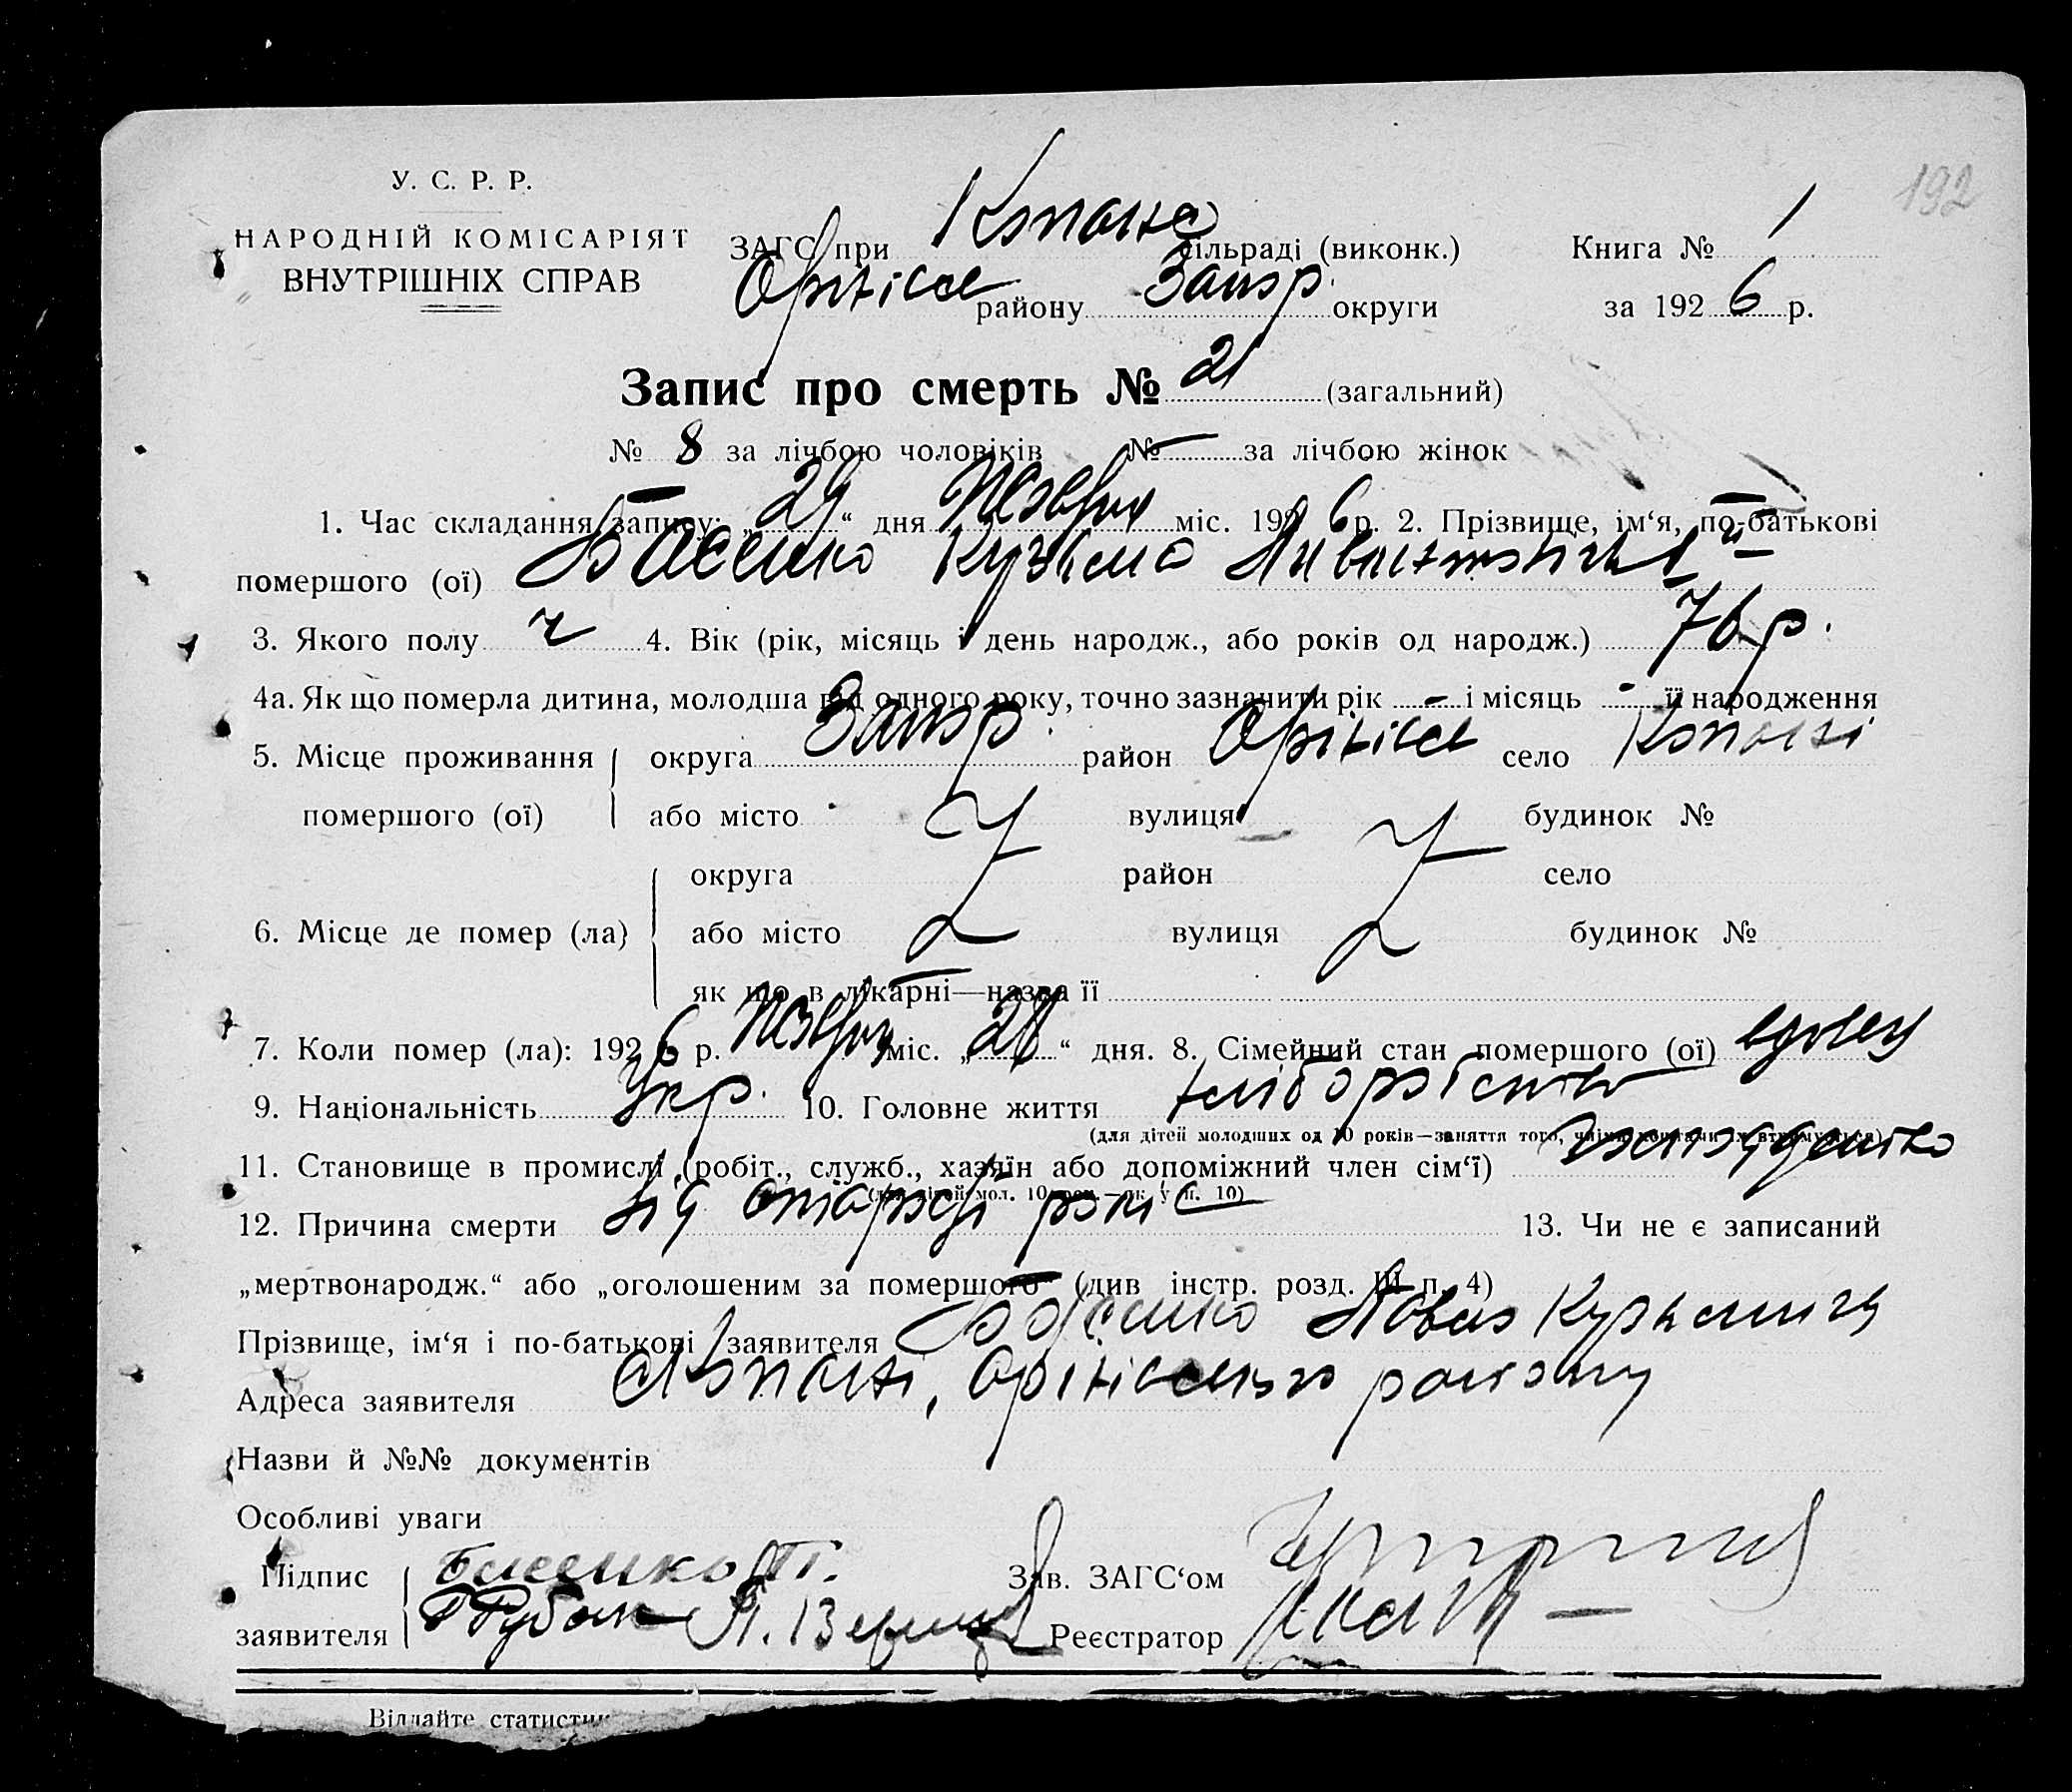 192
У. С. Р. Р.
НАРОДНІЙ КОМІСАРІЯТ
ВНУТРІШНІХ СПРАВ
ЗАГС при Копанс. сільраді (виконк.) Книга № 1
Оріхівсь району Запор. округи за 1926 р.
Запис про смерть № 21 (загальний)
№ 8 за лічбою чоловіків № — за лічбою жінок
1. Час складання запису: „29“ дня міс. 1926 р. 2. Прізвище, ім‘я, по-батькові
помершого (ої) Басенко Кузьма
3. Якого полу ч 4. Вік (рік, місяць і день народж., або років од народж.) 76 р.
4а. Як що померла дитина, молодша від одного року, точно зазначити рік - і місяць - її народження
5. Місце проживання округа Запор. район Оріхівсь село Копані
помершого (ої) або місто вулиця будинок №
округа район село
6. Місце де помер (ла) або місто вулиця будинок №
як що в лікарні—назва її
7. Коли помер (ла): 1926 р. міс. „28“ дня. 8. Сімейний стан помершого (ої) вдовец
9. Національність Укр. 10. Головне життя хліборобство
(для дітей молодших од 10 років—заняття того, чиїми коштами їх втримується)
11. Становище в промислі (робіт., служб., хазяїн або допоміжний член сім‘ї)
(для дітей мол. 10 рок.—як у п. 10)
12. Причина смерти від старості років 13. Чи не є записаний
„мертвонародж.“ або „оголошеним за помершого“ (див інстр. розд. III п. 4)
Прізвище, ім‘я і по-батькові заявителя Басенко Павло Кузьмич
Адреса заявителя с. Копані, Оріхівського району
Назви й №№ документів
Особливі уваги
Підпис Басенко П. Зав. ЗАГС‘ом
заявителя Реєстратор
Віддайте статистич